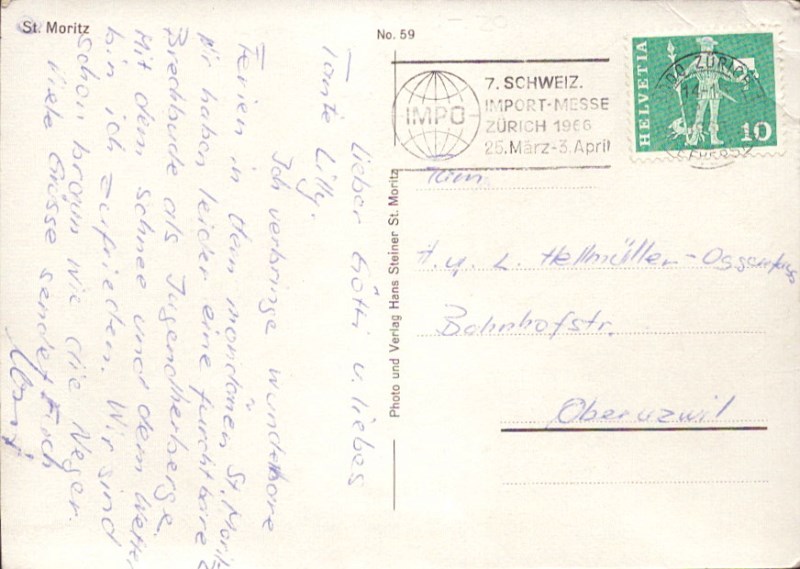 St. Moritz
No. 59
7. SCHWEIZ.
IMPORT-MESSE
ZÜRICH 1966
25. März-3. April
IMPO
ZÜRICH
HELVETIA
10
Photo und Verlag Hans Steiner St. Moritz
Lieber Götti u. liebes
Tante Lilly.
Ich verbringe wunderbare
Ferien in dem mondänen St. Moritz
Wir haben leider eine furchtbare
Bredbude als Jugendherberge.
Mit dem schnee und dem Wetter
bin ich zufrieden. Wir sind
schon braun wie die Neger.
Viele Grüsse sendet Euch
H. u. L. Hellmüller-
Bahnhofstr.
Oberuzwil